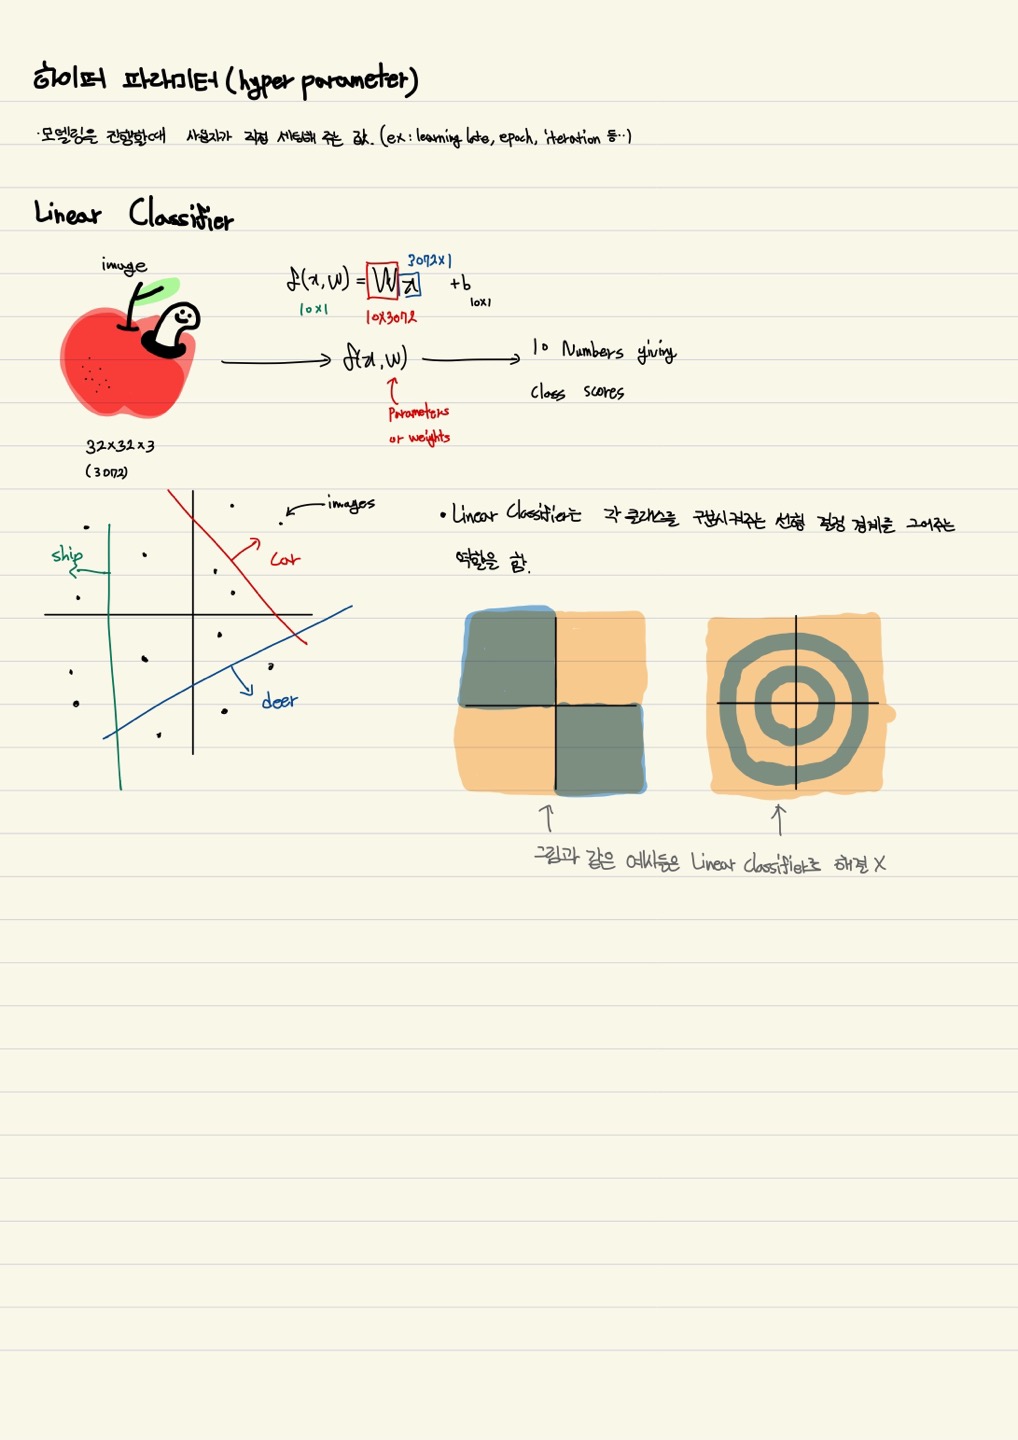 하이퍼 파라미터 (hyper parameter)
·모델링을 진행할때 사용자가 직접 세팅해 주는 값. (ex: learning late, epoch, iteration 등..)
Linear Classifier
image
f(x,W) = Wx + b
3072×1
10×1
10×3072
10×1
f(x,W)
10 Numbers giving
class scores
Parameters
or weights
32×32×3
(3072)
images
ship
car
deer
• Linear Classifier는 각 클래스를 구분시켜주는 선형 결정 경계를 그어주는
역할을 함.
그림과 같은 예시들은 Linear Classifier로 해결 X